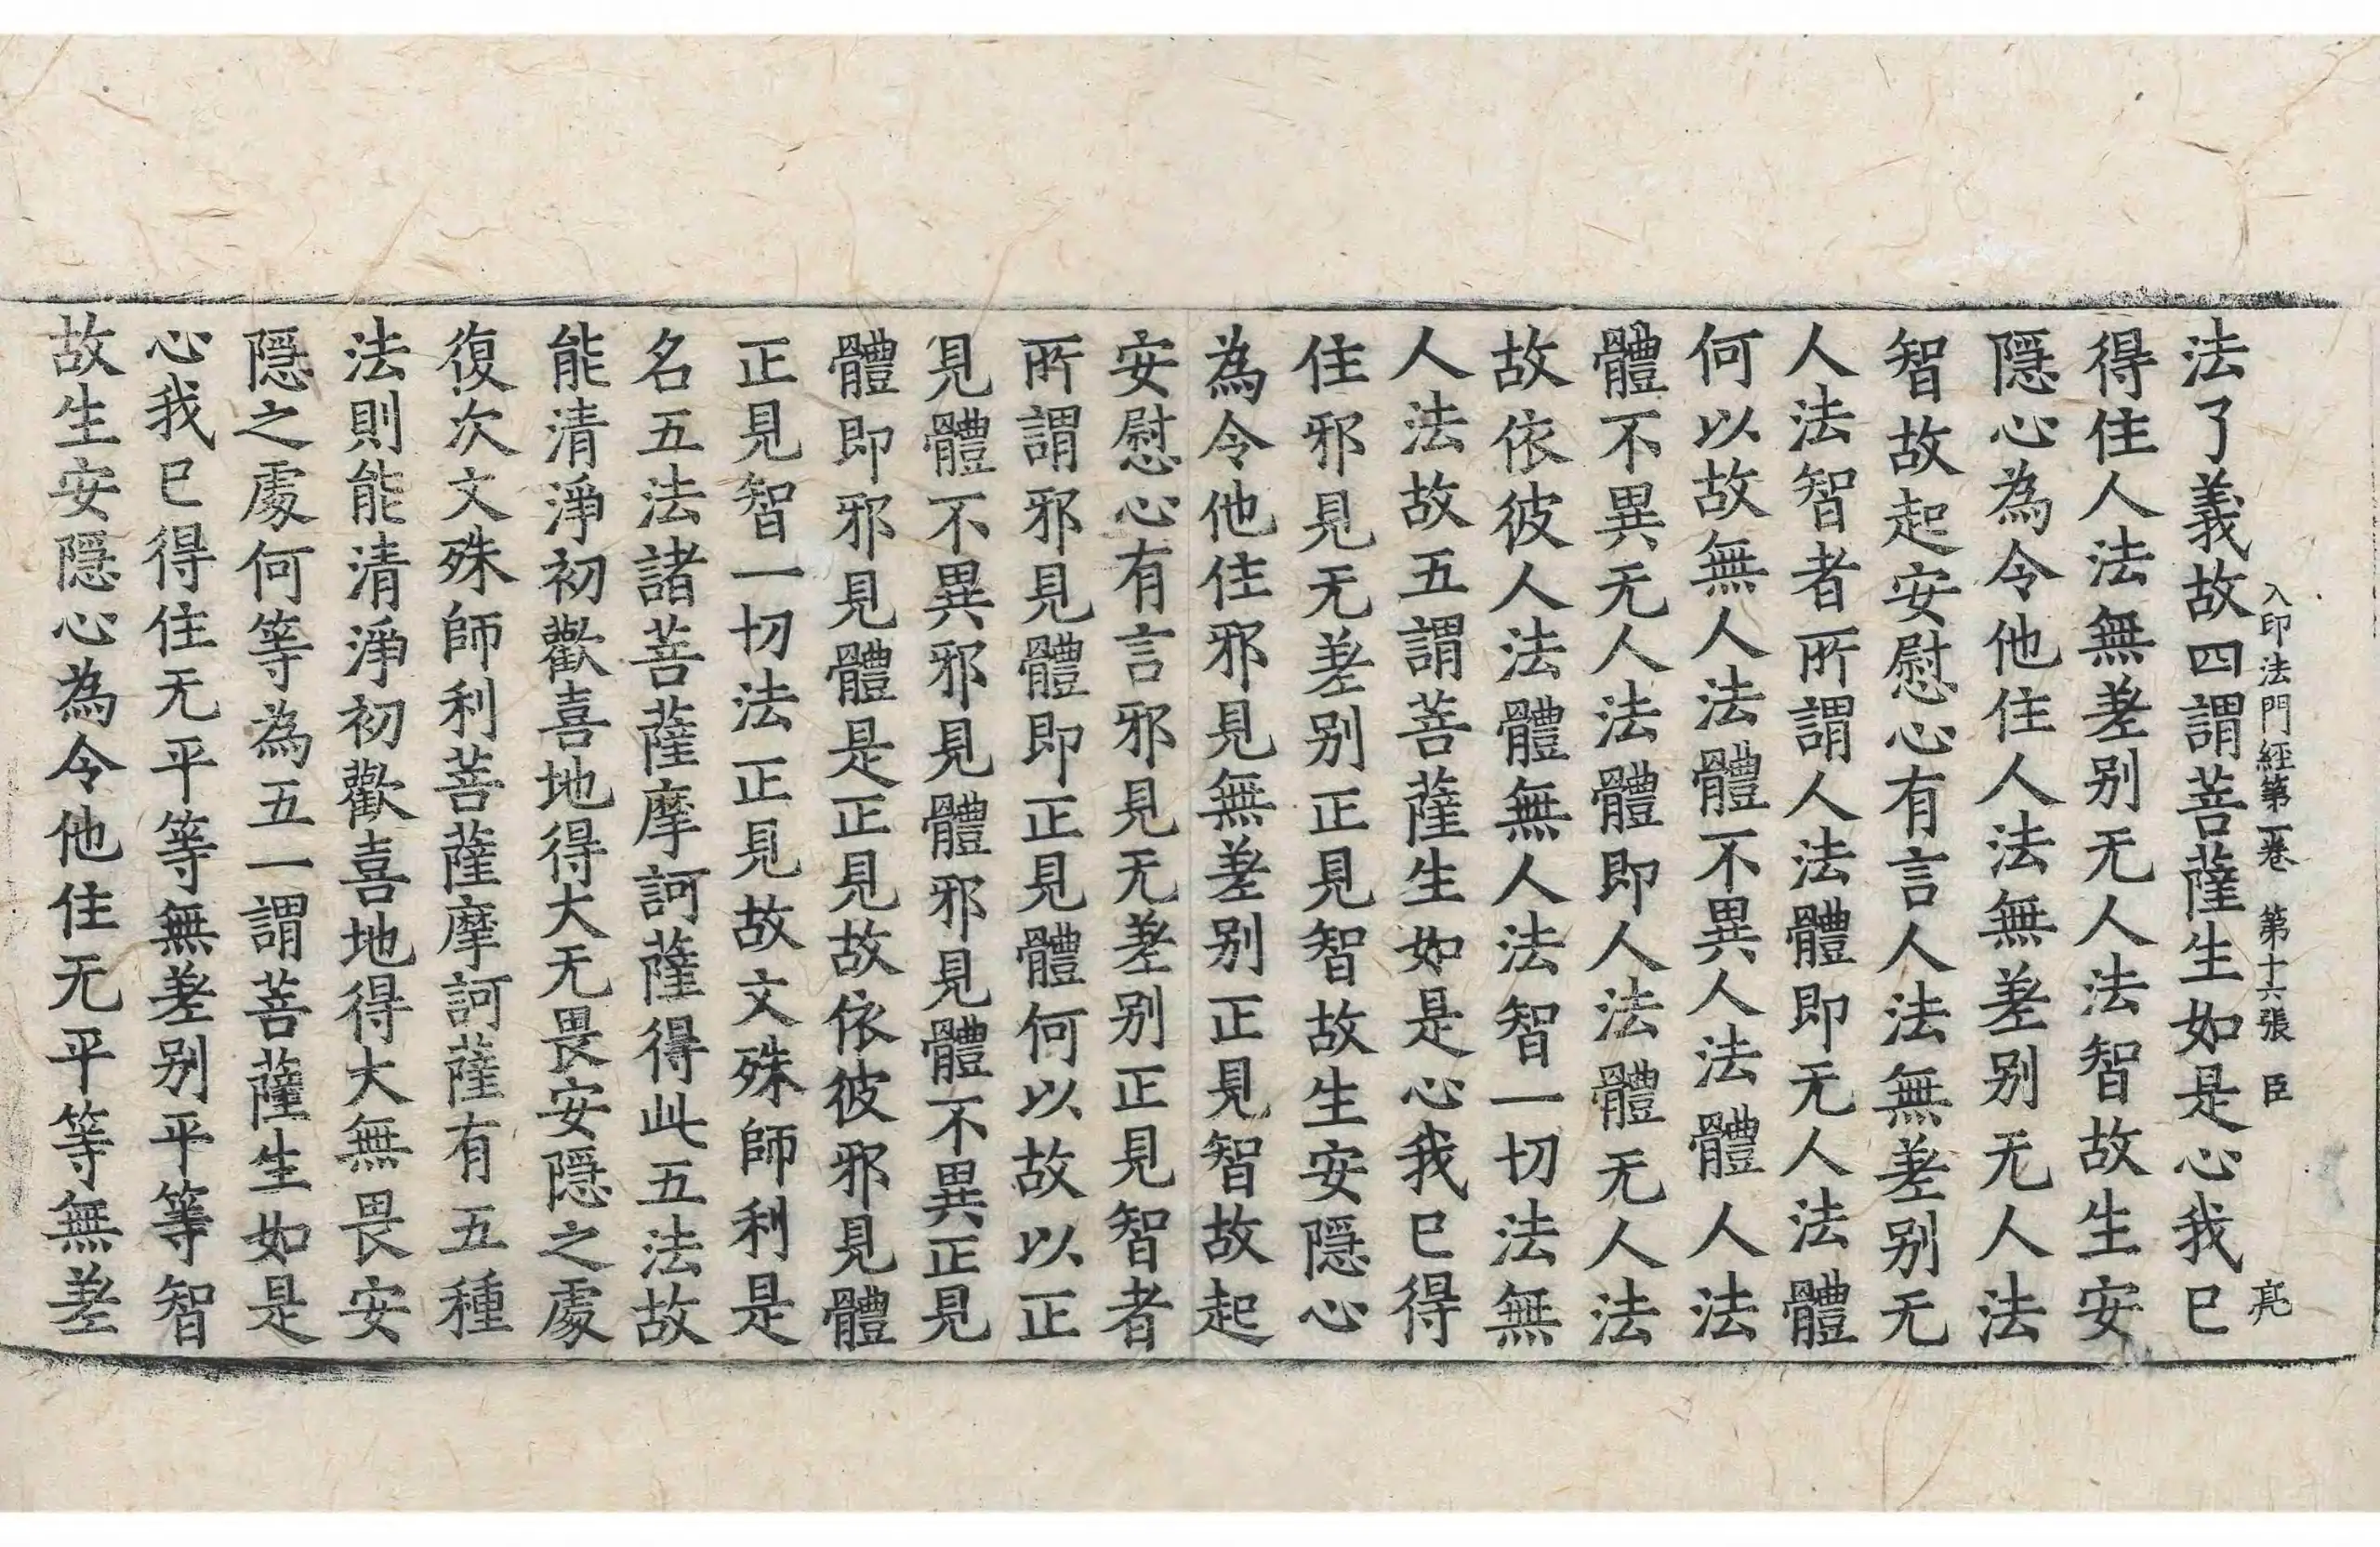 入印法門經第一卷　第十六張　臣　亮
法了義故四謂菩薩生如是心我已
得住人法無差别无人法智故生安
隱心為令他住人法無差别无人法
智故起安慰心有言人法無差别无
人法智者所謂人法體即无人法體
何以故無人法體不異人法體人法
體不異无人法體即人法體无人法
故依彼人法體無人法智一切法無
人法故五謂菩薩生如是心我已得
住邪見无差别正見智故生安隱心
為令他住邪見無差别正見智故起
安慰心有言邪見无差别正見智者
所謂邪見體即正見體何以故以正
見體不異邪見體邪見體不異正見
體即邪見體是正見故依彼邪見體
正見智一切法正見故文殊師利是
名五法諸菩薩摩訶薩得此五法故
能清淨初歡喜地得大无畏安隱之處
復次文殊師利菩薩摩訶薩有五種
法則能清淨初歡喜地得大無畏安
隱之處何等為五一謂菩薩生如是
心我已得住无平等無差别平等智
故生安隱心為令他住无平等無差